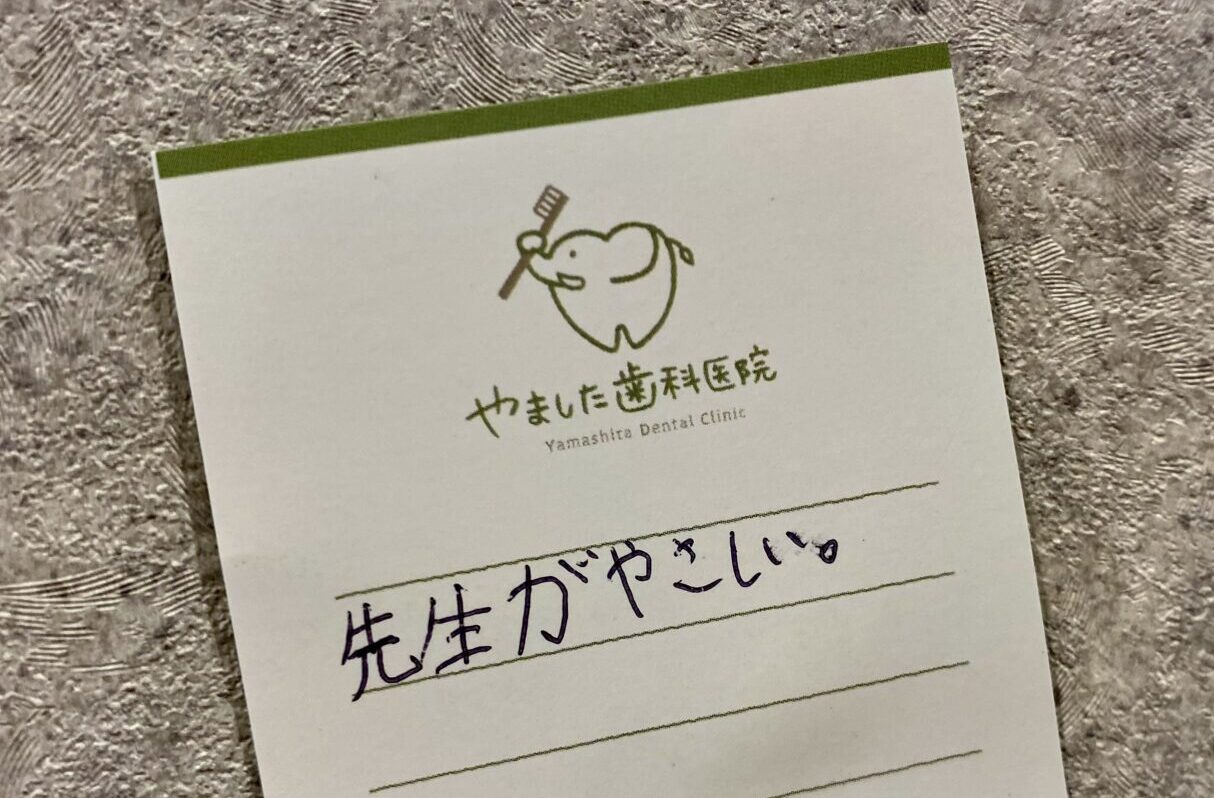 やました歯科医院
Yamashita Dental Clinic
先生がやさしい。